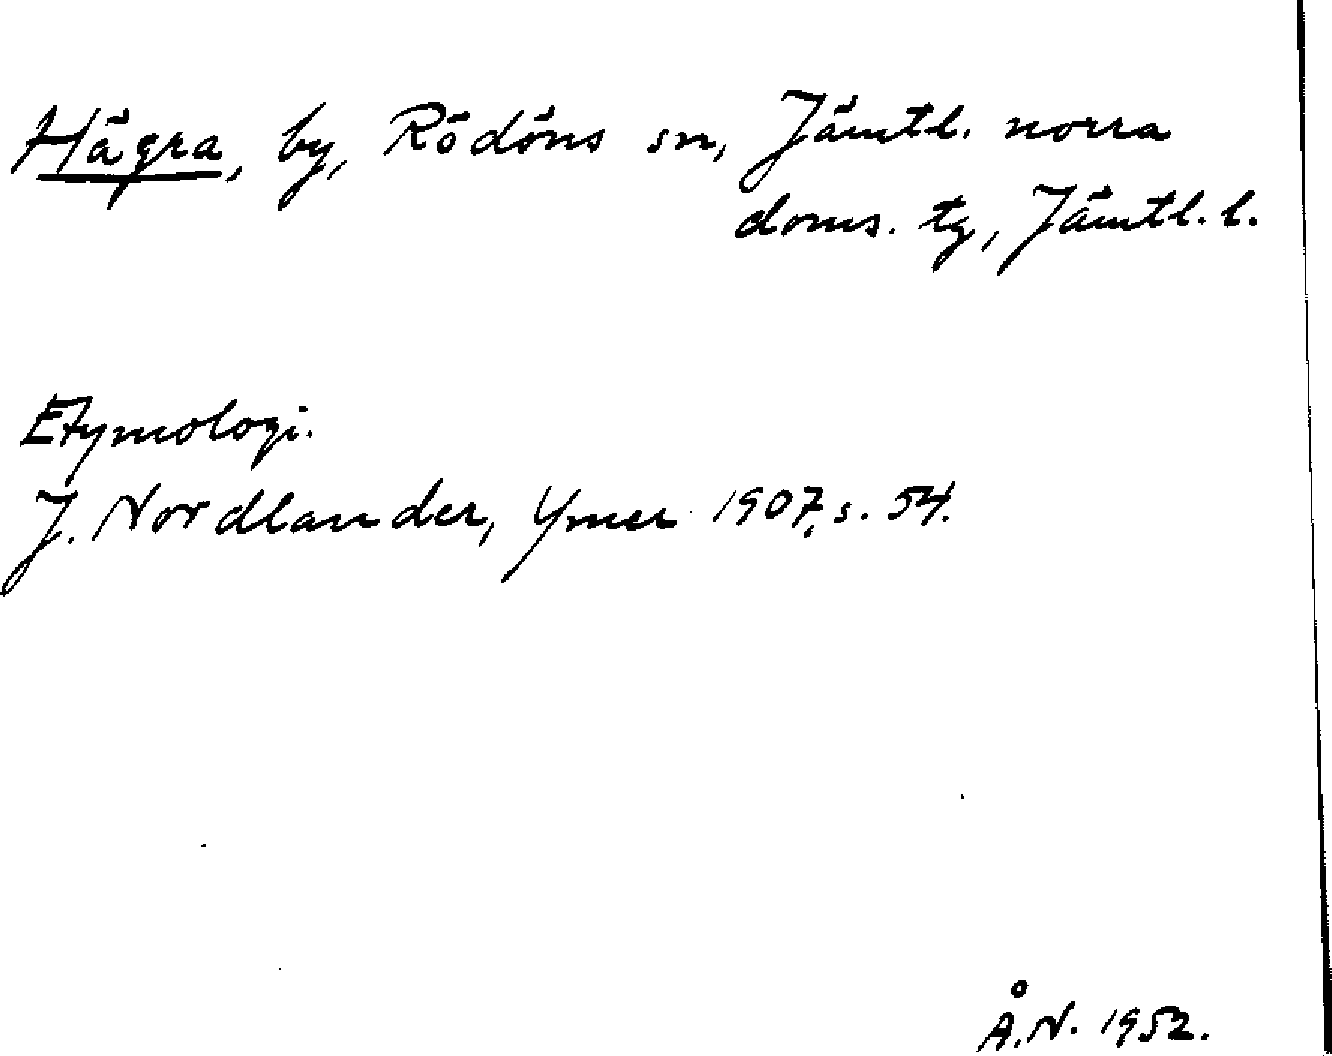 Hägra, by, Rödöns sn, Jämtl. norra
doms. tg, Jämtl. l.
Etymologi.
J. Nordlander, Ymer 1907, s. 54.
Å.N. 1952.